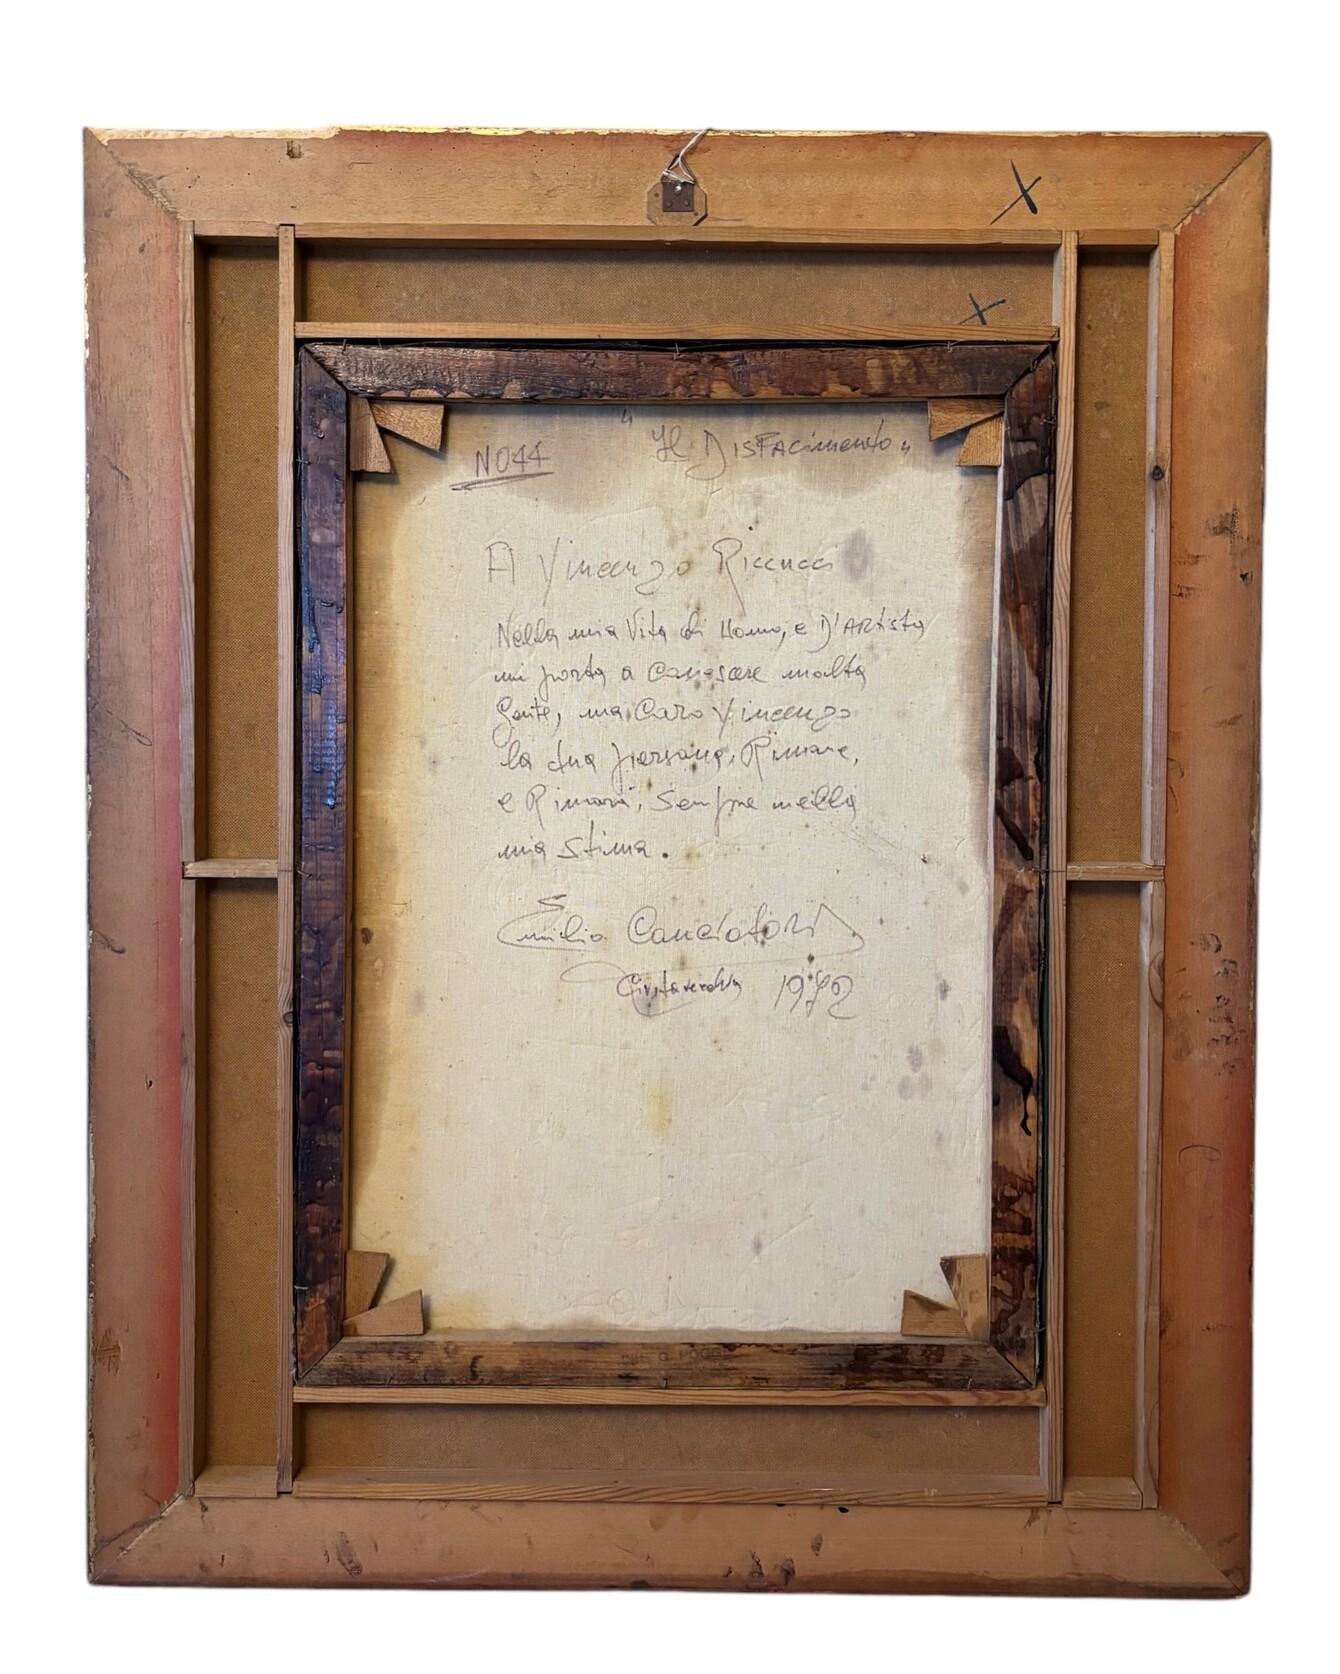 N044
" Il DISFAcimento "
A Vincenzo Riccucci
Nella mia Vita di Uomo, e D'ARtista
mi porta a Conoscere molta
Gente, ma Caro Vincenzo
la tua persona, Rimane,
e Rimarà, Sempre nella
mia Stima.
Emilio Canciafori
Civitavecchia 1972